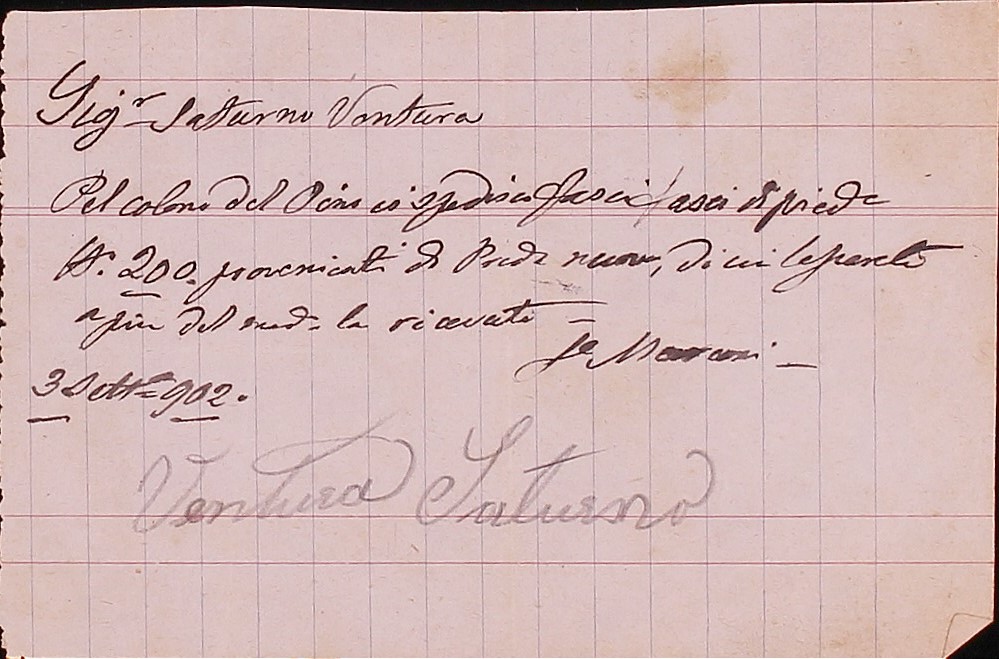 Sigr Saturno Ventura
Pel colono del Pino si spedisce fasci di piede
N. 200. provenienti di Piede nuove, di cui
a piu del med. la ricevuta =
Fe Marconi -
3 Sett.e 902.
Ventura Saturno